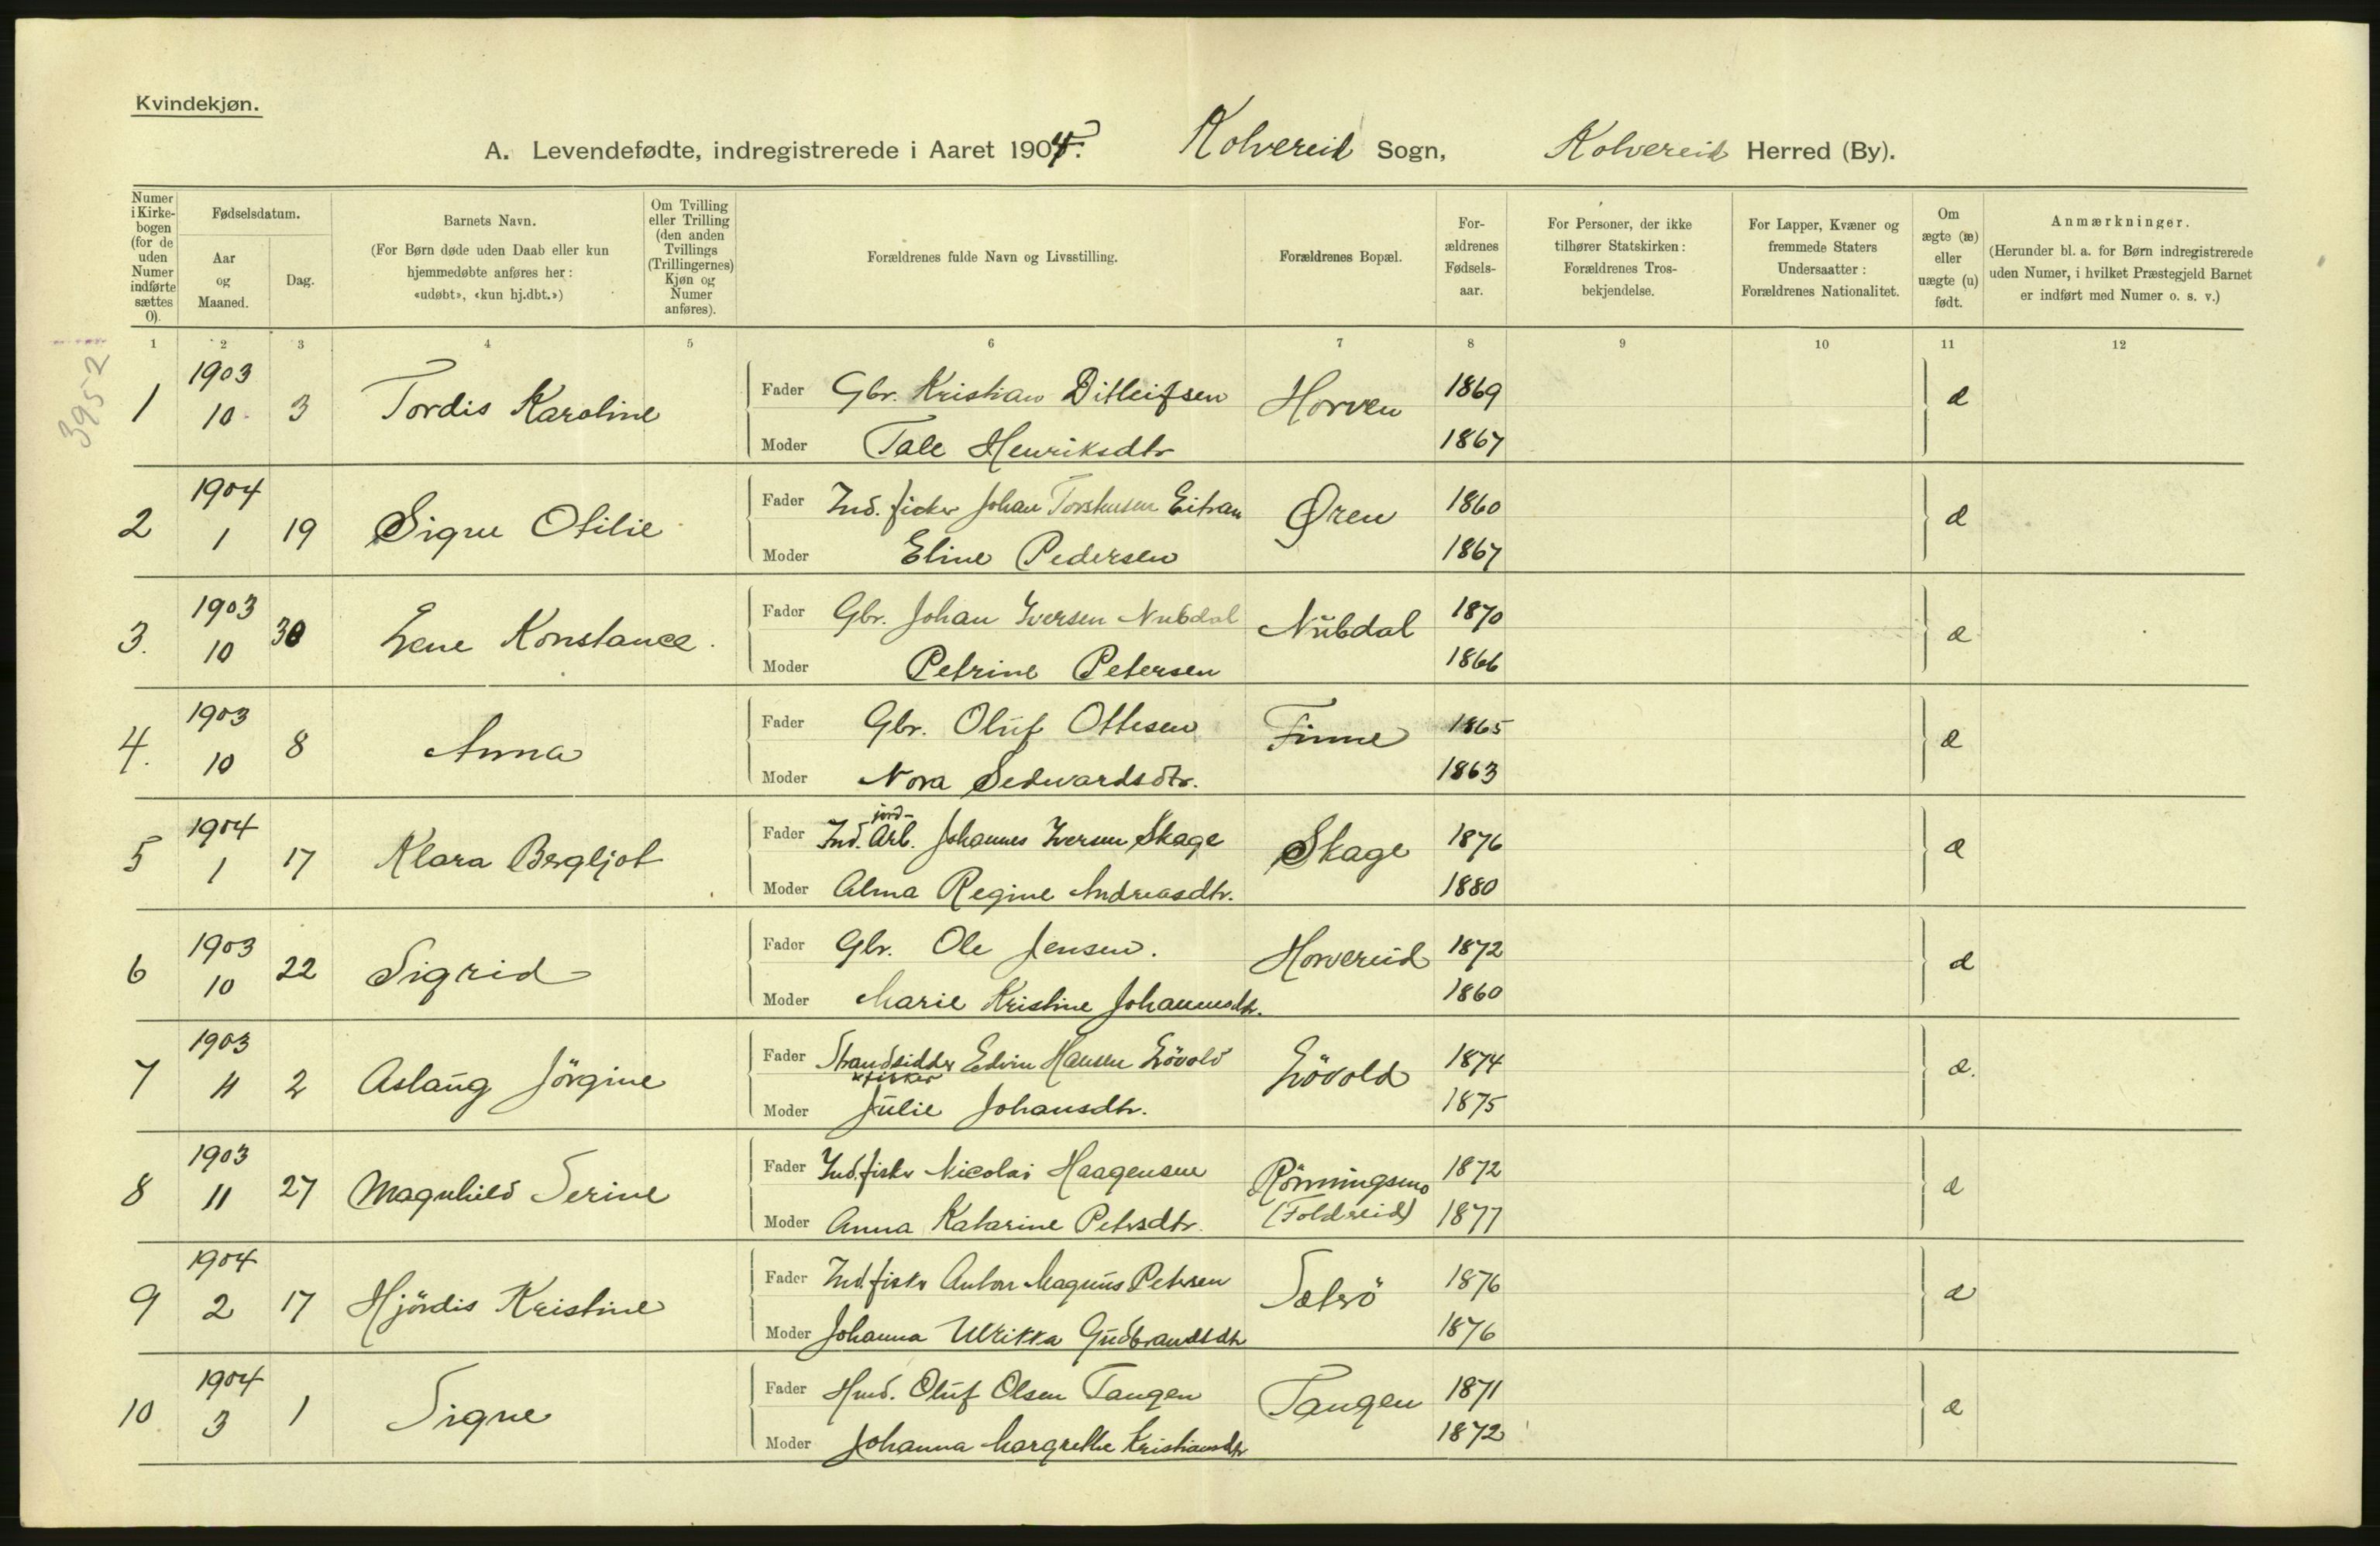 Kvindekjøn.
A. Levendefødte, indregistrerede i Aaret 1904. Kolvereid Sogn, Kolvereid Herred (By).
Numer i Kirkebogen (for de uden Numer indførte sættes 0).
Fødselsdatum.
Aar og Maaned.
Dag.
Barnets Navn.
(For Børn døde uden Daab eller kun hjemmedøbte anføres her: «udøbt», «kun hj.dbt.»)
Om Tvilling eller Trilling (den anden Tvillings (Trillingernes) Kjøn og Numer anføres).
Forældrenes fulde Navn og Livsstilling.
Forældrenes Bopæl.
For-ældrenes Fødsels-aar.
For Personer, der ikke tilhører Statskirken: Forældrenes Tros-bekjendelse.
For Lapper, Kvæner og fremmede Staters Undersaatter: Forældrenes Nationalitet.
Om ægte (æ) eller uægte (u) født.
Anmærkninger.
(Herunder bl. a. for Børn indregistrerede uden Numer, i hvilket Præstegjeld Barnet er indført med Numer o. s. v.)
1 2 3 4 5 6 7 8 9 10 11 12
3952
1 1903 10 3 Tordis Karoline Fader Gbr. Kristian Ditleifsen Horven 1869 æ
Moder Tale Henriksdtr 1867
2 1904 1 19 Signe Otilie Fader Ind. fisker Johan Torstensen Eitran Øren 1860 æ
Moder Eline Pedersen 1867
3. 1903 10 30 Lene Konstance. Fader Gbr. Johan Iversen Nubdal Nubdal 1870 æ
Moder Petrine Petersen 1866
4. 1903 10 8 Anna Fader Gbr. Oluf Ottesen Finne 1865 æ
Moder Nora Sedvardsdtr. 1863
5 1904 1 17 Klara Bergljot Fader Ind. jord-Arb. Johannes Iversen Skage Skage 1876 æ
Moder Alma Regine Andreasdtr. 1880
6 1903 10 22 Sigrid Fader Gbr. Ole Jensen. Horvereid 1872 æ
Moder Marie Kristine Johannesdtr. 1860
7 1903 11 2 Aslaug Jörgine Fader Strandsidder & fisker Edvin Hansen Lövold Lövold 1874 æ.
Moder Julie Johansdtr. 1875
8 1903 11 27 Magnhild Serine Fader Ind. fisker Nicolai Haagensen Rönningsmo (Foldreid) 1872 æ
Moder Anna Katarine Petersdtr. 1877
9 1904 2 17 Hjördis Kristine Fader Ind. fisker Anton Magnus Petersen 1876 æ
Moder Johanna Ulrikka Gudbrandsdtr 1876
10 1904 3 1 Signe Fader Hmd. Oluf Olsen Tangen Tangen 1871 æ
Moder Johanna Margrethe Kristiansdtr 1872